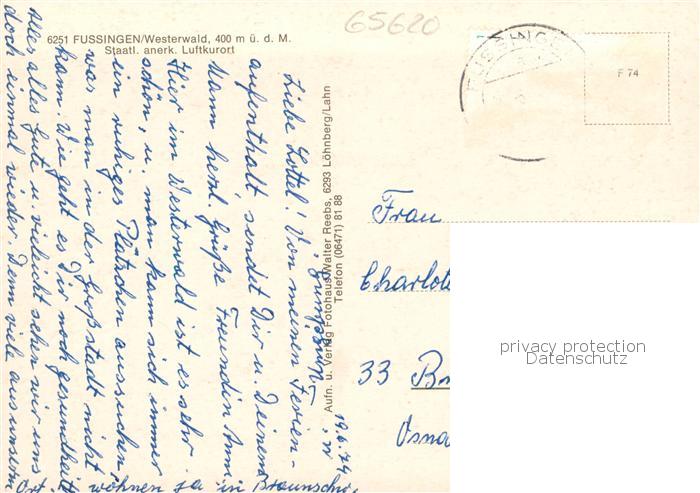 65620
6251 FUSSINGEN/Westerwald, 400 m ü. d. M.
Staatl. anerk. Luftkurort
F 74
Aufn. u. Verlag Fotohaus Walter Reebs, 6293 Löhnberg/Lahn
Telefon (06471) 81 88
19.6.74
Liebe Lottel! Von meinen Ferien-
aufenthalt, sendet Dir u. Deinem
Mann herzl. Grüße Freundin Anni
Hier im Westerwald ist es sehr
schön, u. man kann sich immer
ein ruhiges Plätzchen aussuchen,
was man in der Großstadt nicht
kann. Wie geht es Dir noch gesundheitl.
Alles alles Gute u. vieleicht sehen wir uns
doch einmal wieder. Denn viele aus unserm
Ort, wohnen ja in Braunschw.
Frau
Charlot
33 Br
Osna
privacy protection
Datenschutz